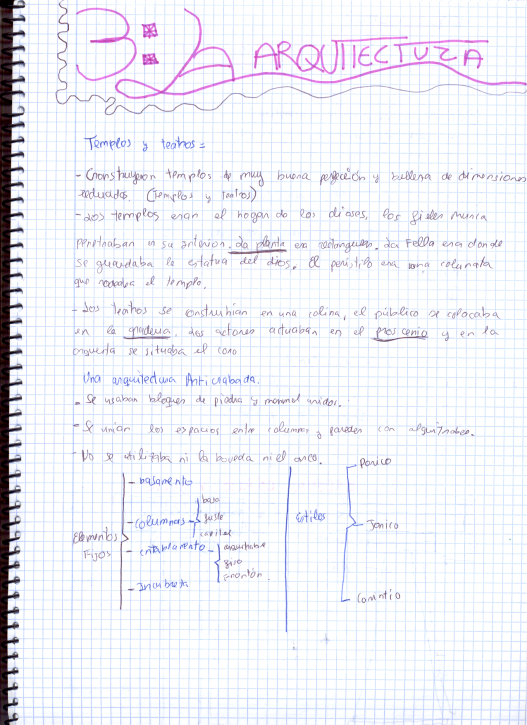 3: LA ARQUTIECTURA
Templos y teatros =
- Construyeron templos de muy buena perfección y belleza de dimensiones
reducidas. (Templos y teatros)
- Los templos eran el hogar de los dioses, los fieles nunca
penetraban en su interior. La planta era rectangular. La Fella era donde
se guardaba la estatua del dios. El peristilo era una columnata
que rodeaba el templo.
- Los teatros se construhian en una colina, el público se colocaba
en la gradería. Los actores actuaban en el proscenio y en la
orquesta se situaba el coro
Una arquitectura
- Se usaban bloques de piedra y marmol unidos.
- Se unian los espacios entre columnas y paredes con
- No se utilizaba ni la boveda ni el arco.
Elementos Fijos
- basamento
- columnas - basa
fuste
capitel
- entablamento - arquitrabe
friso
frontón.
Estilos
- Dorico
- Jonico
- Corintio